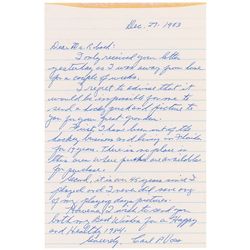 Dec. 27. 1983
Dear Mr.
I only received your letter
yesterday as I was away from home
for a couple of weeks.
I regret to advise that it
would be impossible for me to
send a hockey puck and picture to
you for your great grandson.
First, I have been out of the
hockey business and living in Florida
for 17 years. There is no place in
this area where pucks are available
for purchase.
Second, it is over 45 years since I
played and I never did save any
of my playing days pictures.
However, I wish to send you
both my Best Wishes for a Happy
and Healthy 1984.
Sincerely, Carl P. Voss